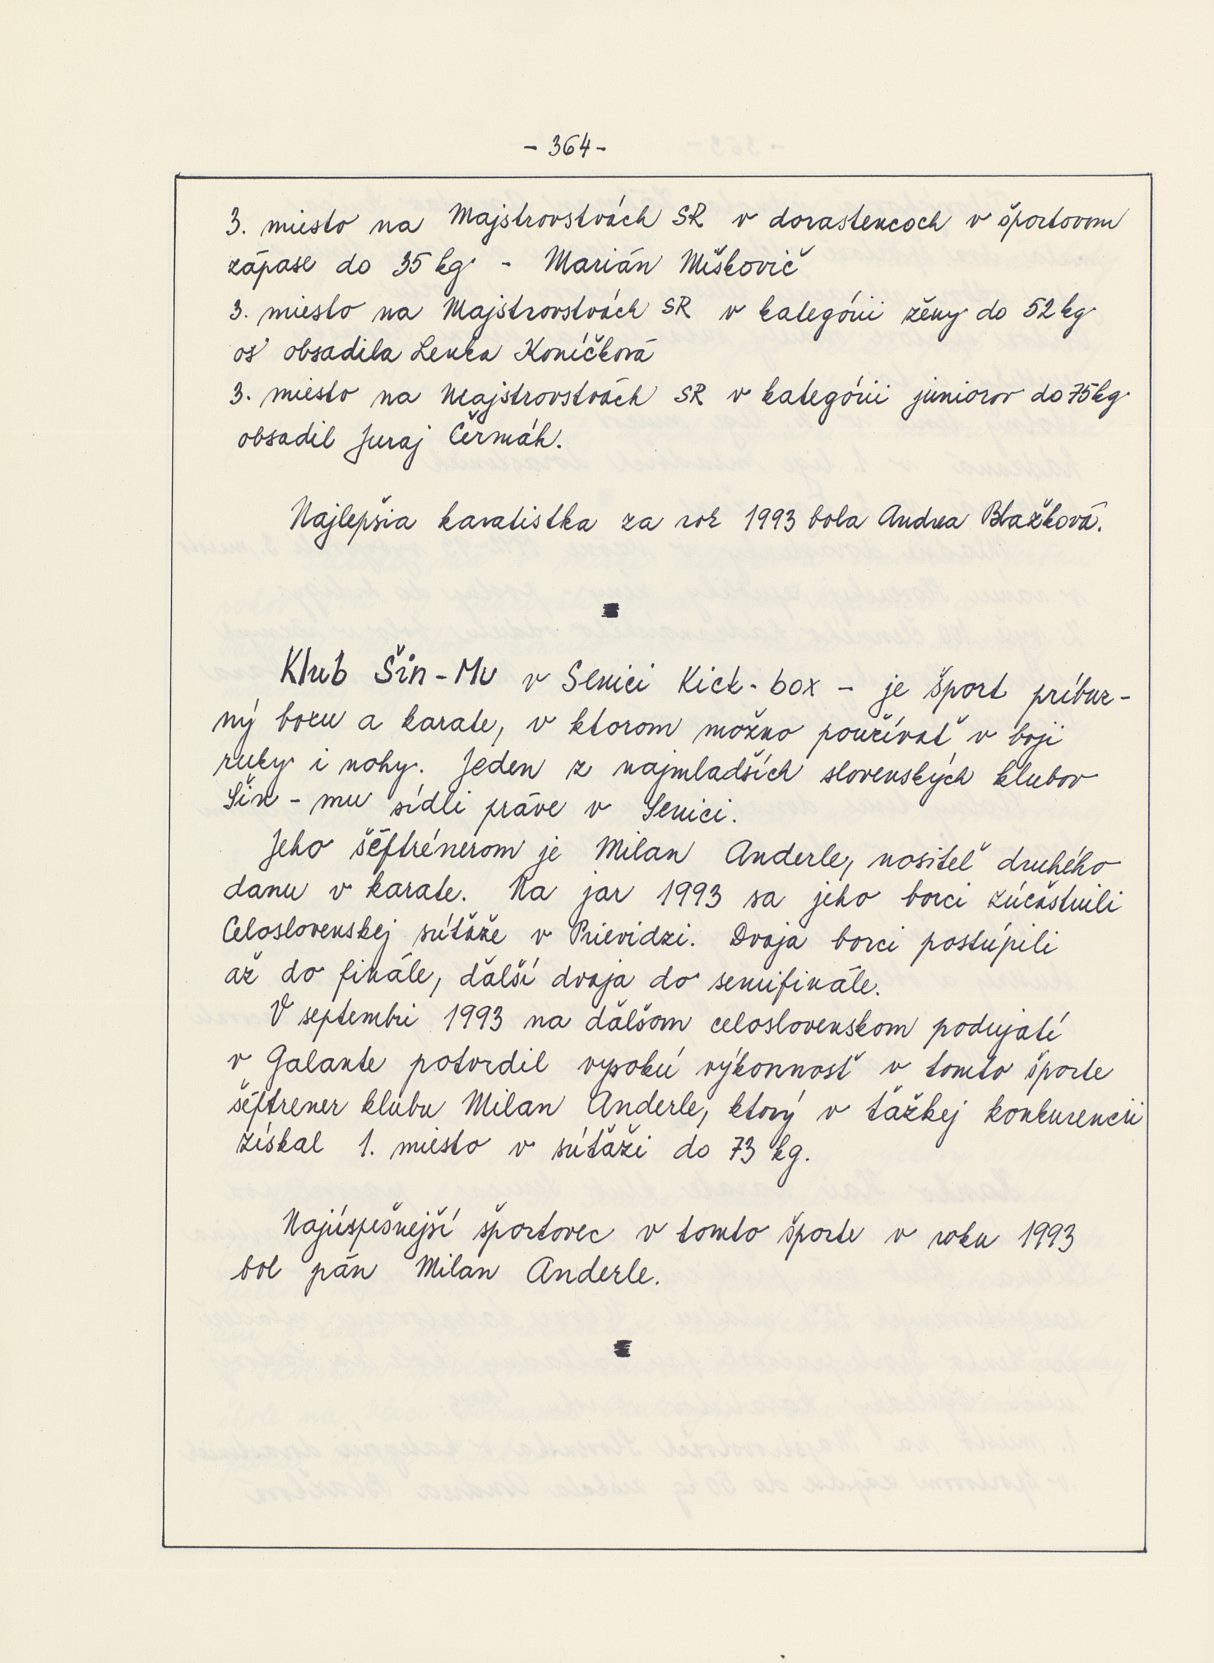 - 364 -
3. miesto na Majstrovstvách SR v dorastencoch v športovom
zápase do 35 kg - Marián Miškovič
3. miesto na Majstrovstvách SR v kategórii ženy do 52 kg
obsadila Lenka Koníčková
3. miesto na Majstrovstvách SR v kategórii juniorov do 75 kg
obsadil Juraj Čermák.
Najlepšia karatistka za rok 1993 bola Andrea Blažková.
Klub Šin-Mu v Senici Kick-box - je šport príbuz-
ný boxu a karate, v ktorom možno používať v boji
ruky i nohy. Jeden z najmladších slovenských klubov
Šin-mu sídli práve v Senici.
Jeho šéftrénerom je Milan Anderle, nositeľ druhého
danu v karate. Na jar 1993 sa jeho borci zúčastnili
Celoslovenskej súťaže v Prievidzi. Dvaja borci postúpili
až do finále, ďalší dvaja do semifinále.
V septembri 1993 na ďalšom celoslovenskom podujatí
v Galante potvrdil vysokú výkonnosť v tomto športe
šéftrener klubu Milan Anderle, ktorý v ťažkej konkurencii
získal 1. miesto v súťaži do 73 kg.
Najúspešnejší športovec v tomto športe v roku 1993
bol pán Milan Anderle.